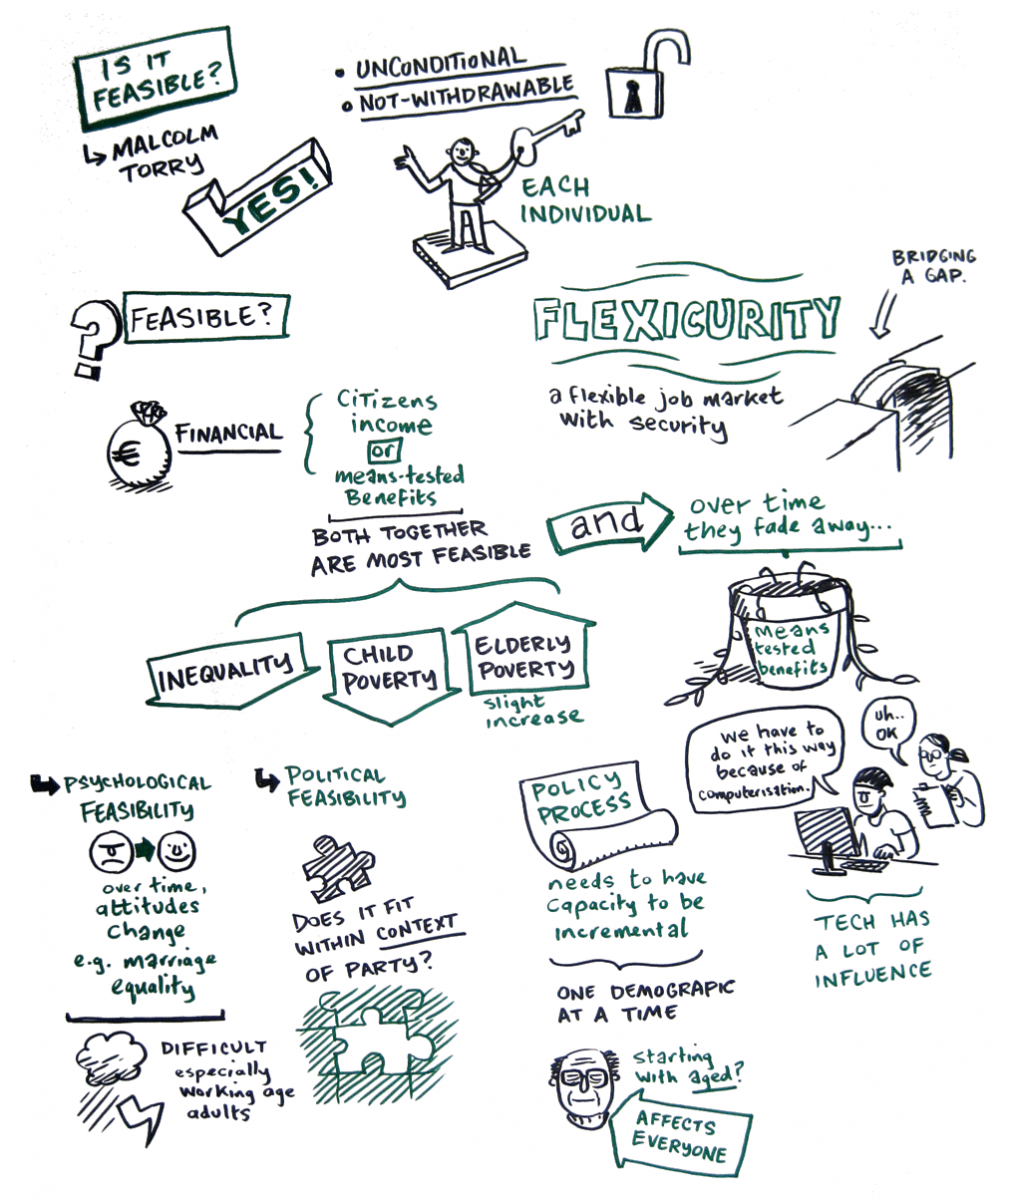 IS IT
FEASIBLE?
↳ MALCOLM
TORRY
YES!
• UNCONDITIONAL
• NOT-WITHDRAWABLE
EACH
INDIVIDUAL
FEASIBLE?
FLEXICURITY
a flexible job market
with security
BRIDGING
A GAP.
€
FINANCIAL
CiTizens
income
or
means-tested
Benefits
BOTH TOGETHER
ARE MOST FEASIBLE
and
over time
they fade away...
means
tested
benefits
INEQUALITY
CHILD
POVERTY
ELDERLY
POVERTY
slight
increase
we have to
do it this way
because of
computerisation.
uh..
OK
↳ PSYCHOLOGICAL
FEASIBILITY
over time,
attitudes
change
e.g. marriage
equality
DIFFICULT
especially
working age
adults
↳ POLITICAL
FEASIBILITY
DOES IT FIT
WITHIN CONTEXT
OF PARTY?
POLICY
PROCESS
needs to have
capacity to be
incremental
ONE DEMOGRAPIC
AT A TIME
starting
with aged?
AFFECTS
EVERYONE
TECH HAS
A LOT OF
INFLUENCE